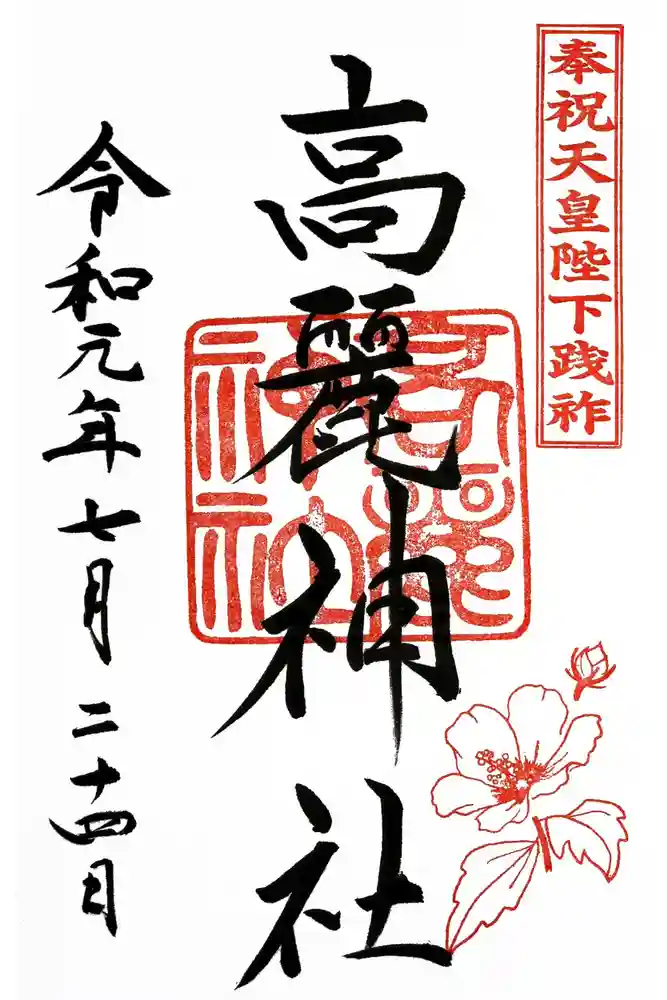 奉祝天皇陛下践祚
高麗神社
令和元年七月二十四日